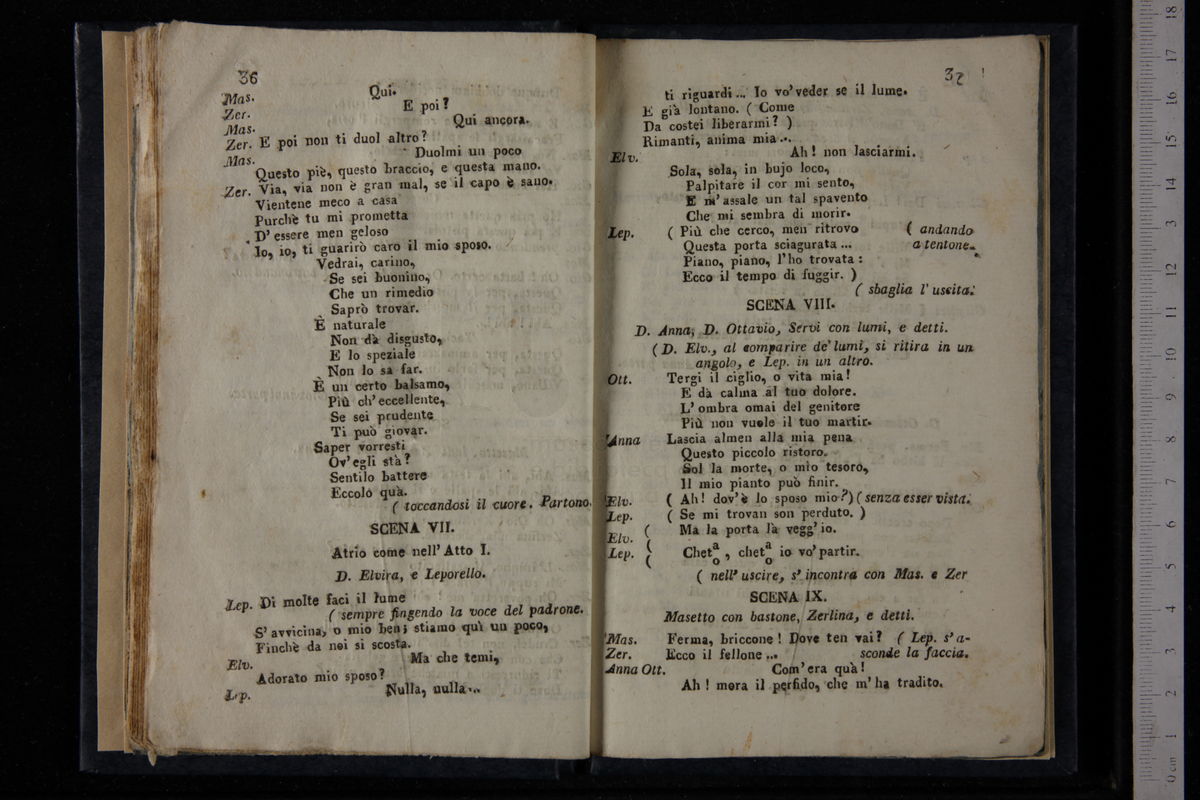 36
Mas. Qui.
Zer. E poi?
Mas. Qui ancora.
Zer. E poi non ti duol altro?
Mas. Duolmi un poco
Questo piè, questo braccio, e questa mano.
Zer. Via, via non è gran mal, se il capo è sano.
Vientene meco a casa
Purchè tu mi prometta
D' essere men geloso
Io, io, ti guarirò caro il mio sposo.
Vedrai, carino,
Se sei buonino,
Che un rimedio
Saprò trovar.
È naturale
Non dà disgusto,
E lo speziale
Non lo sa far.
È un certo balsamo,
Più ch' eccellente,
Se sei prudente
Ti può giovar.
Saper vorresti
Ov' egli stà?
Sentilo battere
Eccolo quà.
( toccandosi il cuore. Partono.
SCENA VII.
Atrio come nell' Atto I.
D. Elvira, e Leporello.
Lep. Di molte faci il lume
( sempre fingendo la voce del padrone.
S' avvicina, o mio ben; stiamo quì un poco,
Finchè da noi si scosta.
Elv. Ma che temi,
Adorato mio sposo?
Lep. Nulla, nulla...
37
ti riguardi... Io vo' veder se il lume.
E già lontano. ( Come
Da costei liberarmi? )
Rimanti, anima mia...
Elv. Ah! non lasciarmi.
Sola, sola, in bujo loco,
Palpitare il cor mi sento,
E m' assale un tal spavento
Che mi sembra di morir.
Lep. ( Più che cerco, men ritrovo ( andando
Questa porta sciagurata... a tentone.
Piano, piano, l' ho trovata:
Ecco il tempo di fuggir. )
( sbaglia l' uscita.
SCENA VIII.
D. Anna, D. Ottavio, Servi con lumi, e detti.
( D. Elv., al comparire de' lumi, si ritira in un
angolo, e Lep. in un altro.
Ott. Tergi il ciglio, o vita mia!
E dà calma al tuo dolore.
L' ombra omai del genitore
Più non vuole il tuo martir.
Anna Lascia almen alla mia pena
Questo piccolo ristoro.
Sol la morte, o mio tesoro,
Il mio pianto può finir.
Elv. ( Ah! dov' è lo sposo mio?) ( senza esser vista.
Lep. ( Se mi trovan son perduto. )
Elv. ( Ma la porta là vegg' io.
Lep. ( Chet a/o , chet a/o io vo' partir.
( nell' uscire, s' incontra con Mas. e Zer
SCENA IX.
Masetto con bastone, Zerlina, e detti.
Mas. Ferma, briccone! Dove ten vai? ( Lep. s' a-
Zer. Ecco il fellone... sconde la faccia.
Anna Ott. Com' era quà!
Ah! mora il perfido, che m' ha tradito.
0 cm 1 2 3 4 5 6 7 8 9 10 11 12 13 14 15 16 17 18